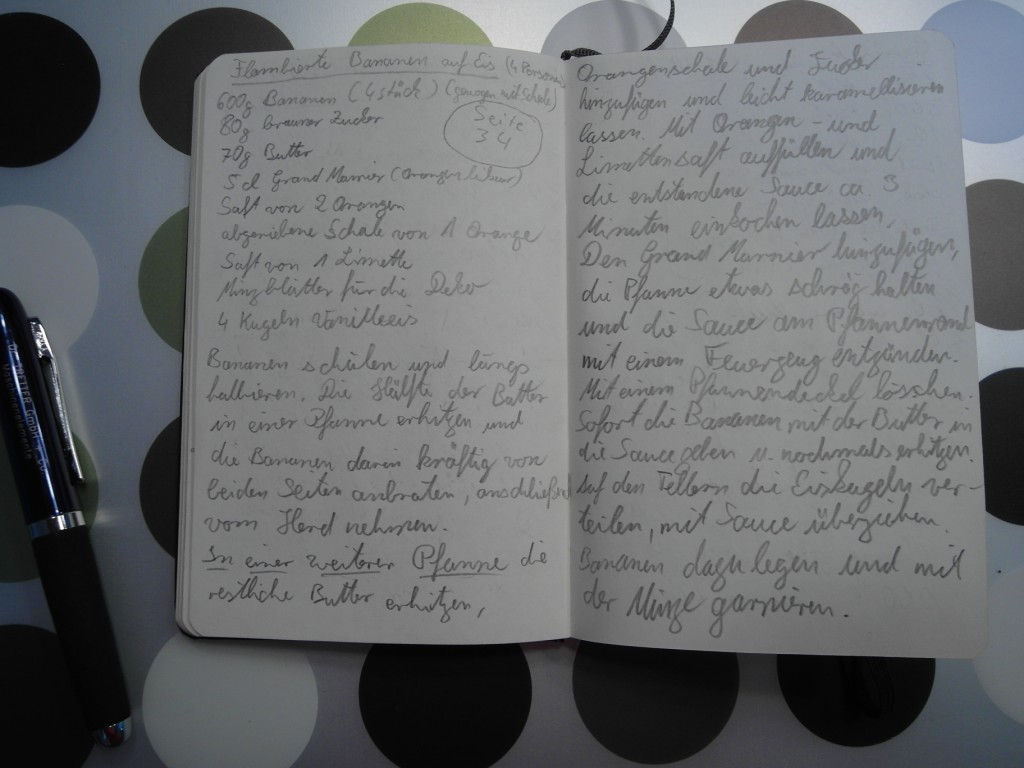 Flambierte Bananen auf Eis (4 Personen)
600g Bananen (4 stück) (gewogen mit Schale)
80g brauner Zucker
70g Butter
Seite
34
5 cl Grand Marnier (Orangenlikör)
Saft von 2 Orangen
abgeriebene Schale von 1 Orange
Saft von 1 Limette
Minzblätter für die Deko
4 Kugeln Vanilleeis
Bananen schälen und längs
halbieren. Die Hälfte der Butter
in einer Pfanne erhitzen und
die Bananen darin kräftig von
beiden Seiten anbraten, anschließend
vom Herd nehmen.
In einer weiterer Pfanne die
restliche Butter erhitzen,
Orangenschale und Zucker
hinzufügen und leicht karamellisieren
lassen. Mit Orangen- und
Limettensaft auffüllen und
die entstandene Sauce ca 3
Minuten einkochen lassen,
Den Grand Marnier hinzufügen,
die Pfanne etwas schräg halten
und die Sauce am Pfannenrand
mit einem Feuerzeug entzünden.
Mit einem Pfannendeckel löschen.
Sofort die Bananen mit der Butter in
die Sauce geben u. nochmals erhitzen.
Auf den Tellern die Eiskugeln ver-
teilen, mit Sauce überziehen.
Bananen dazu legen und mit
der Minze garnieren.